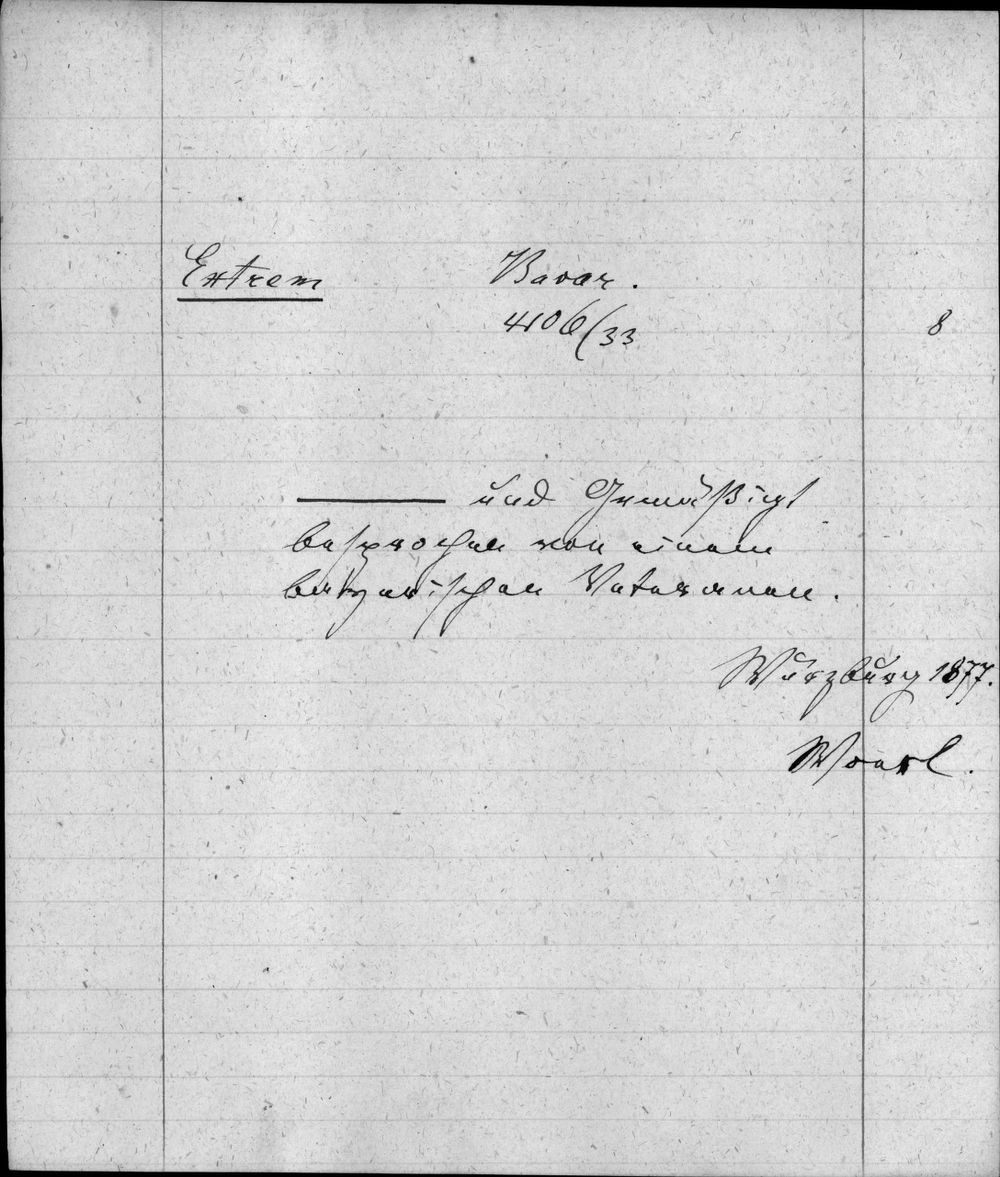 Extrem Bavar.
4106/33 8
——— und Gemäßigt
besprochen von einem
bayerischen Veteranen.
Würzburg 1877.
Woerl.